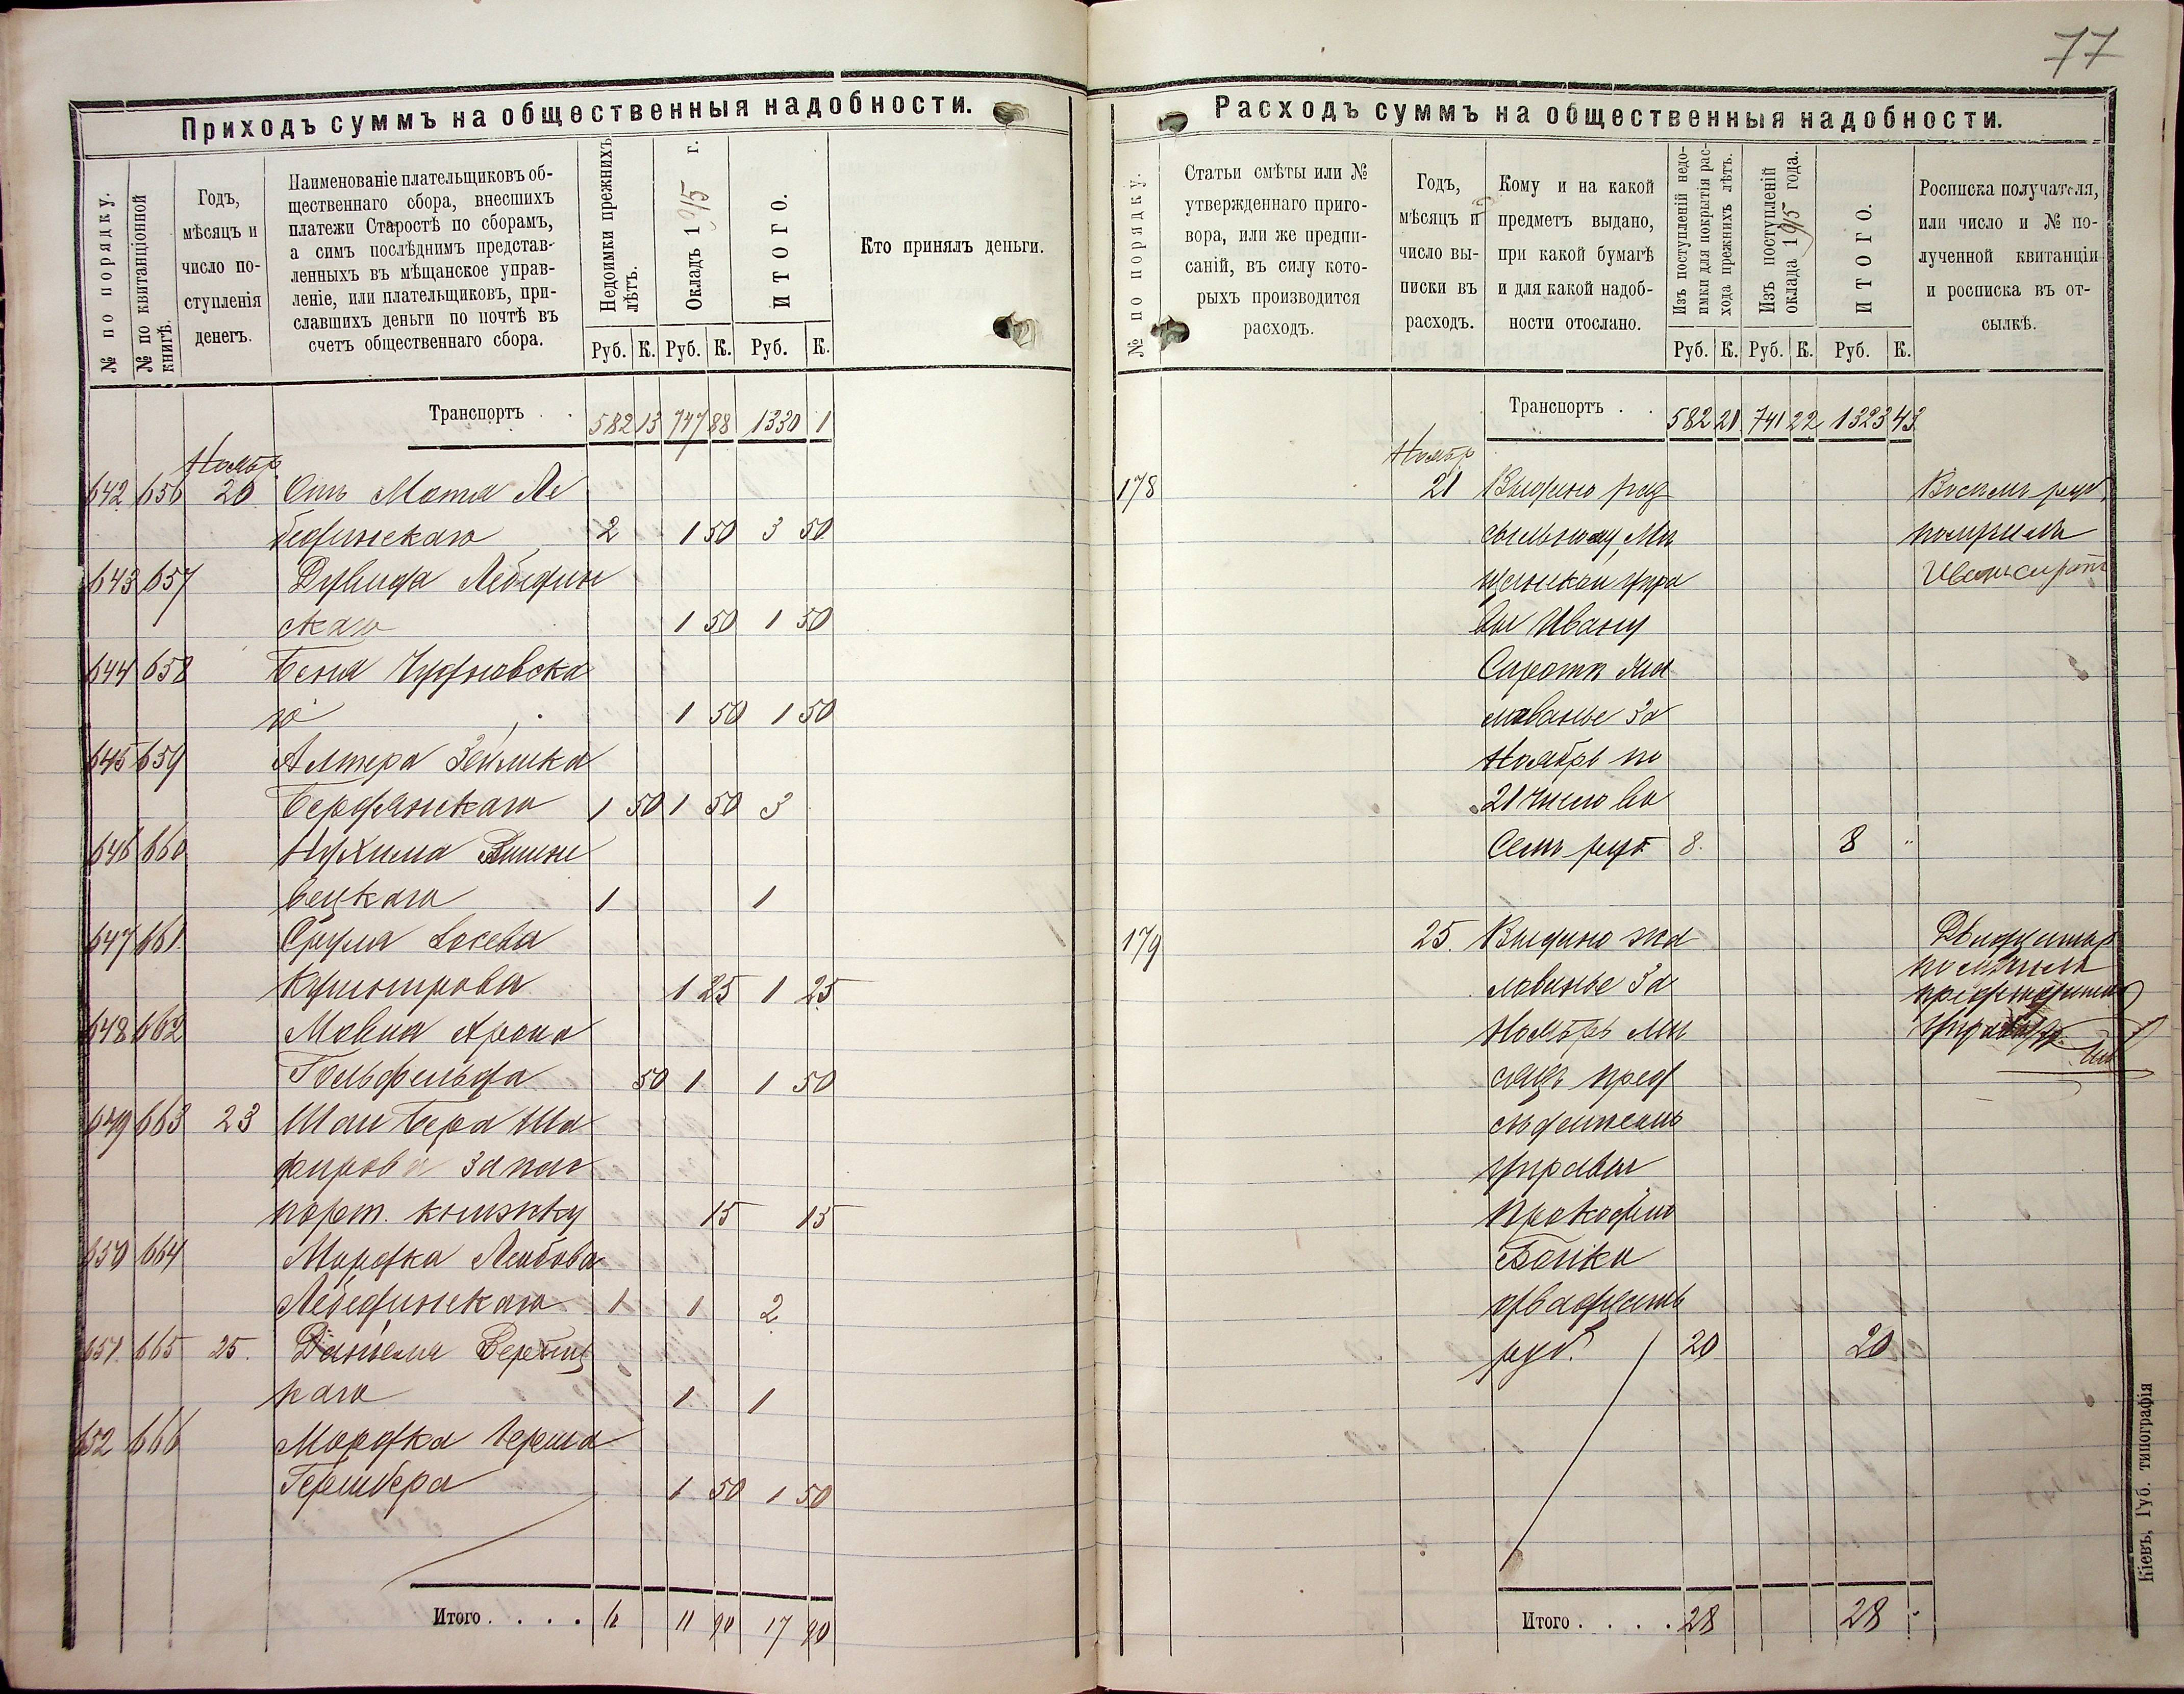 77
Приходъ суммъ на общественныя надобности.
№ по порядку.
№ по квитанціонной книгѣ.
Годъ,
мѣсяцъ и
число по-
ступленія
денегъ.
Наименованіе плательщиковъ об-
щественнаго сбора, внесшихъ
платежи Старостѣ по сборамъ,
а симъ послѣднимъ представ-
ленныхъ въ мѣщанское управ-
леніе, или плательщиковъ, при-
славшихъ деньги по почтѣ въ
счетъ общественнаго сбора.
Недоимки прежнихъ
лѣтъ.
Окладъ 1915 г.
ИТОГО.
Кто принялъ деньги.
Руб. К. Руб. К. Руб. К.
Транспортъ . . 582 13 747 88 1330 1
Ноябр
642 656 20 Отъ Мотя Ле
бединскаго 2 1 50 3 50
643 657 Давида Лебедин
скаго 1 50 1 50
644 658 Беня Чудновска
го 1 50 1 50
645 659 Алтера Зейлика
Бердянскаго 1 50 1 50 3
646 660 Нухима Вишне
вецкаго 1 1
647 661 Срула Іосева
Кушнирова 1 25 1 25
648 662 Мовша Арона
Гольдфельда 50 1 1 50
649 663 23 Шаи Бера Ша
фирова за пас
порт. книжку 15 15
650 664 Мордка Лейбова
Лебединскаго 1 1 2
651 665 25. Даніеля
каго 1 1
652 666 Мордка Герша
Гершбера 1 50 1 50
Итого . . . . 6 11 90 17 90
Расходъ суммъ на общественныя надобности.
№ по порядку.
Статьи смѣты или №
утвержденнаго приго-
вора, или же предпи-
саній, въ силу кото-
рыхъ производится
расходъ.
Годъ,
мѣсяцъ и
число вы-
писки въ
расходъ.
Кому и на какой
предметъ выдано,
при какой бумагѣ
и для какой надоб-
ности отослано.
Изъ поступленій недо-
имки для покрытія рас-
хода прежнихъ лѣтъ.
Изъ поступленій
оклада 1915 года.
ИТОГО.
Росписка получателя,
или число и № по-
лученной квитанціи
и росписка въ от-
сылкѣ.
Руб. К. Руб. К. Руб. К.
Транспортъ . . 582 21 741 22 1323 43
Ноябр
178 21 Выдано раз Восемь руб
сыльному Мѣ получилъ
щанской упра Иванъ Сирота
вы Ивану
Сиротѣ жа
лованье за
Ноябрь по
21 число во
семь руб 8. 8 "
179 25. Выдано жа Двадцать
лованье за получилъ
Ноябрь мѣ председатель
сяцъ пред управы
сѣдателю
управы
Прокофію
Бойко
двадцать
руб. 20 20
Итого . . . . 28 28 -
Кіевъ, Губ. типографія